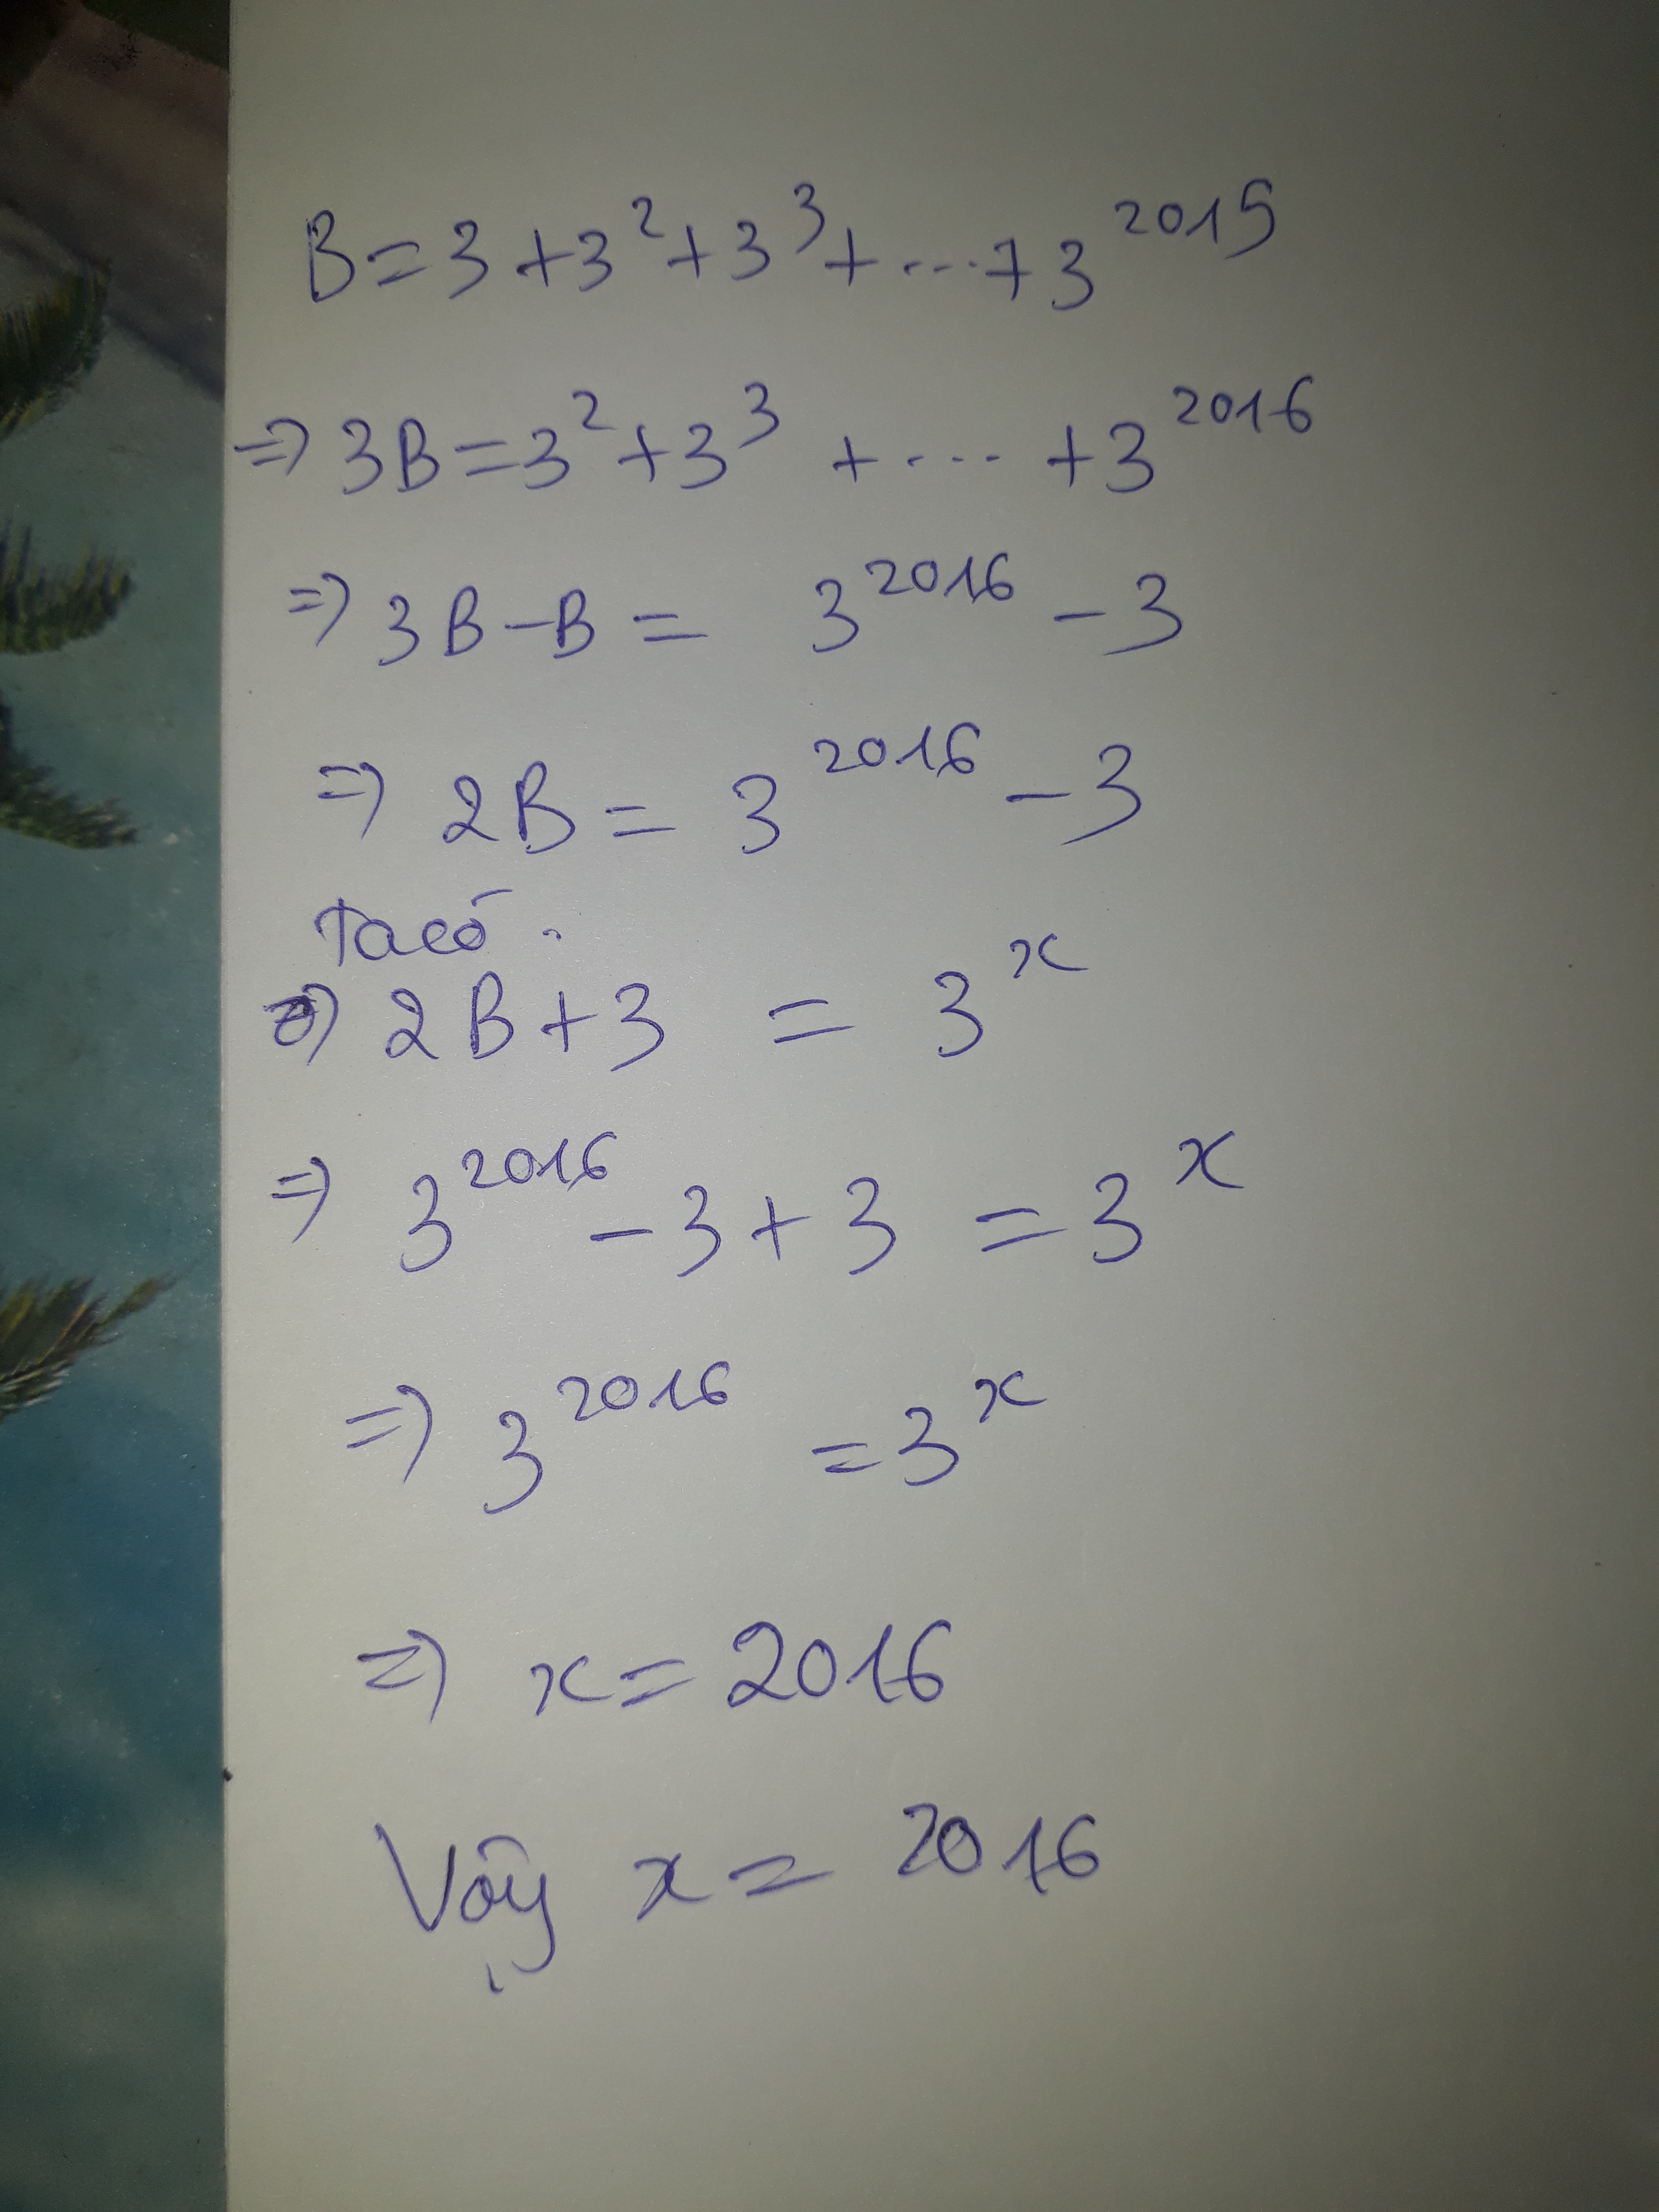 B = 3 + 3² + 3³ + ... + 3²⁰¹⁵
=> 3B = 3² + 3³ + ... + 3²⁰¹⁶
=> 3B - B = 3²⁰¹⁶ - 3
=> 2B = 3²⁰¹⁶ - 3
Ta có :
=> 2B + 3 = 3ˣ
=> 3²⁰¹⁶ - 3 + 3 = 3ˣ
=> 3²⁰¹⁶ = 3ˣ
=> x = 2016
Vậy x = 2016